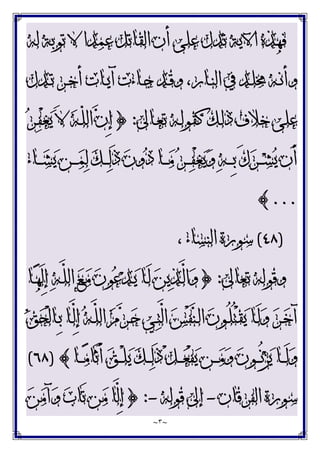 فهذه الآية تدل على أن القاتل عمدا لا توبة له
وأنه مخلد في النار، وقد جاءت آيات أخرى تدل
على خلاف ذلك كقوله تعالى: ﴿ إِنَّ اللَّهَ لَا يَغْفِرُ
أَن يُشْرَكَ بِهِ وَيَغْفِرُ مَا دُونَ ذَلِكَ لِمَن يَشَاء
... ﴾
(٤٨) سورة النساء ،
وقوله تعالى: ﴿ وَالَّذِينَ لَا يَدْعُونَ مَعَ اللَّهِ إِلَهًا
آخَرَ وَلَا يَقْتُلُونَ النَّفْسَ الَّتِي حَرَّمَ اللَّهُ إِلَّا بِالْحَقِّ
وَلَا يَزْنُونَ وَمَن يَفْعَلْ ذَلِكَ يَلْقَ أَثَامًا ﴾ (٦٨)
سورة الفرقان – إلى قوله –: ﴿ إِلَّا مَن تَابَ وَآمَنَ
~٣~